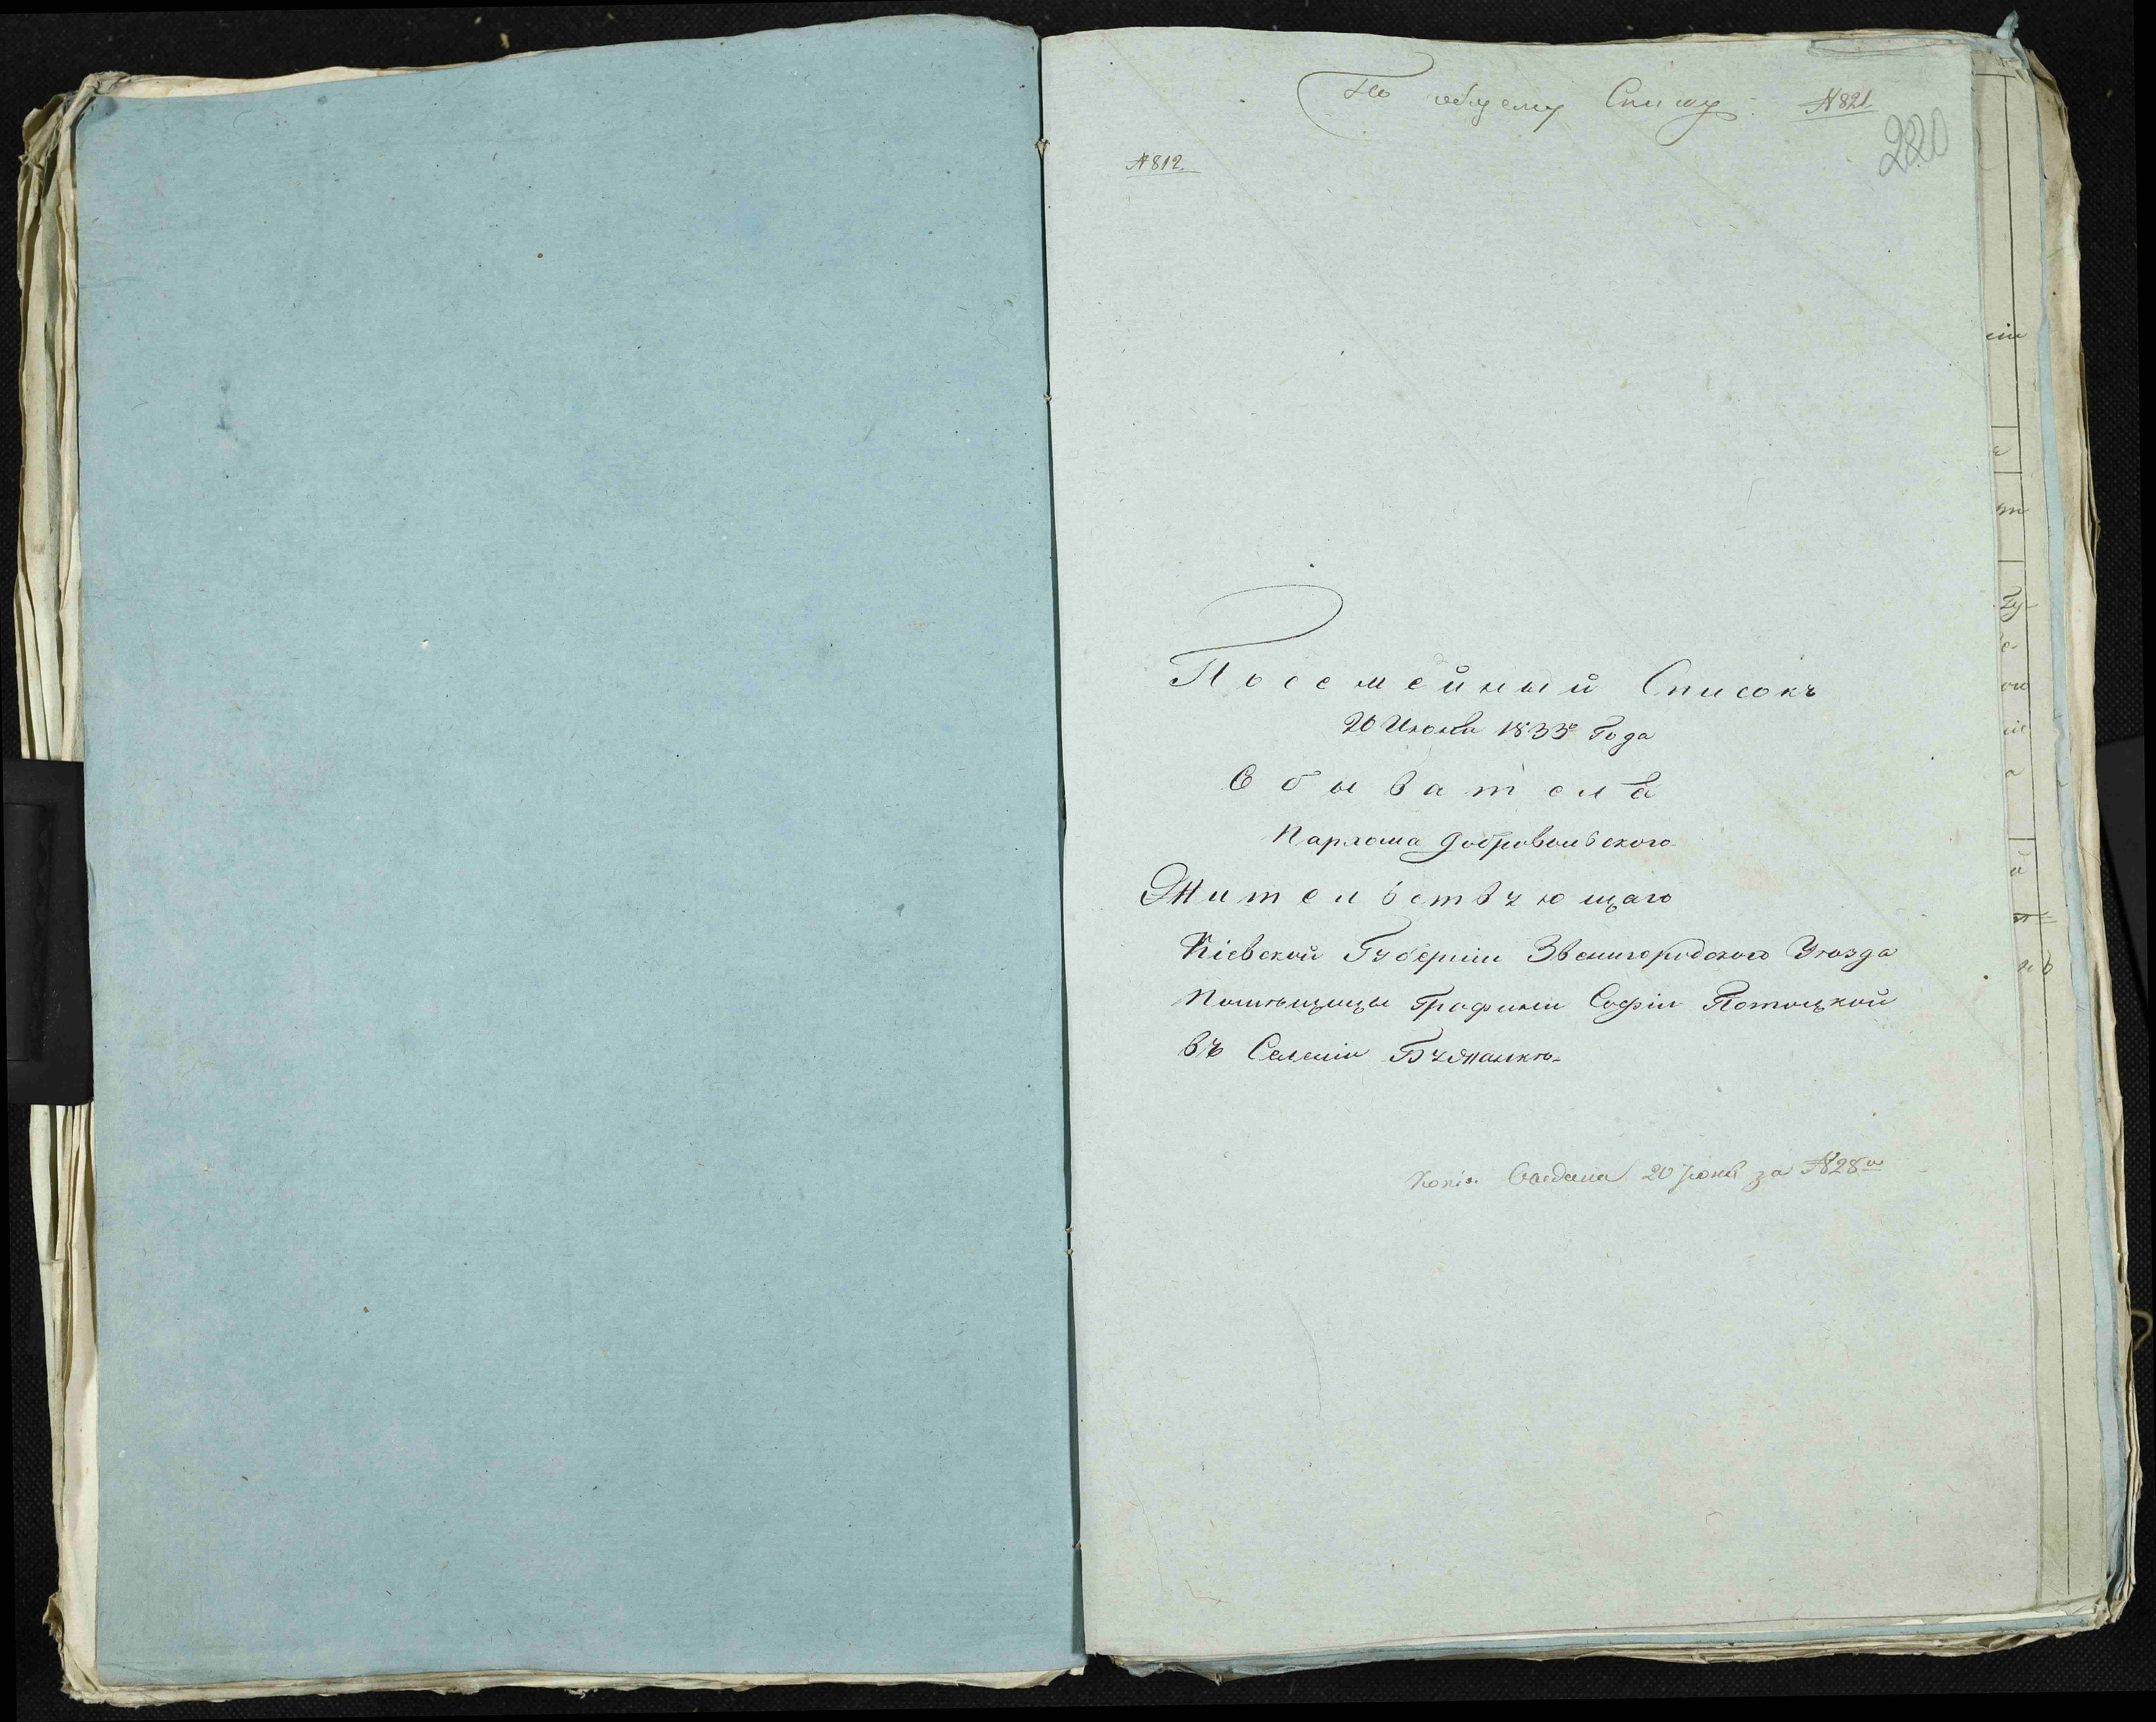 По общему Списку № 821.
280
№ 812.
Посемейный Списокъ
20 Июня 1833го Года
Обывателя
Пархома Добровольского
Жительствующаго
Кіевской Губерніи Звенигородского Уѣзда
Помѣщицы Графини Софіи Потоцкой
въ Селеніи Бужанкѣ
Копія 20 Іюня за № 28м